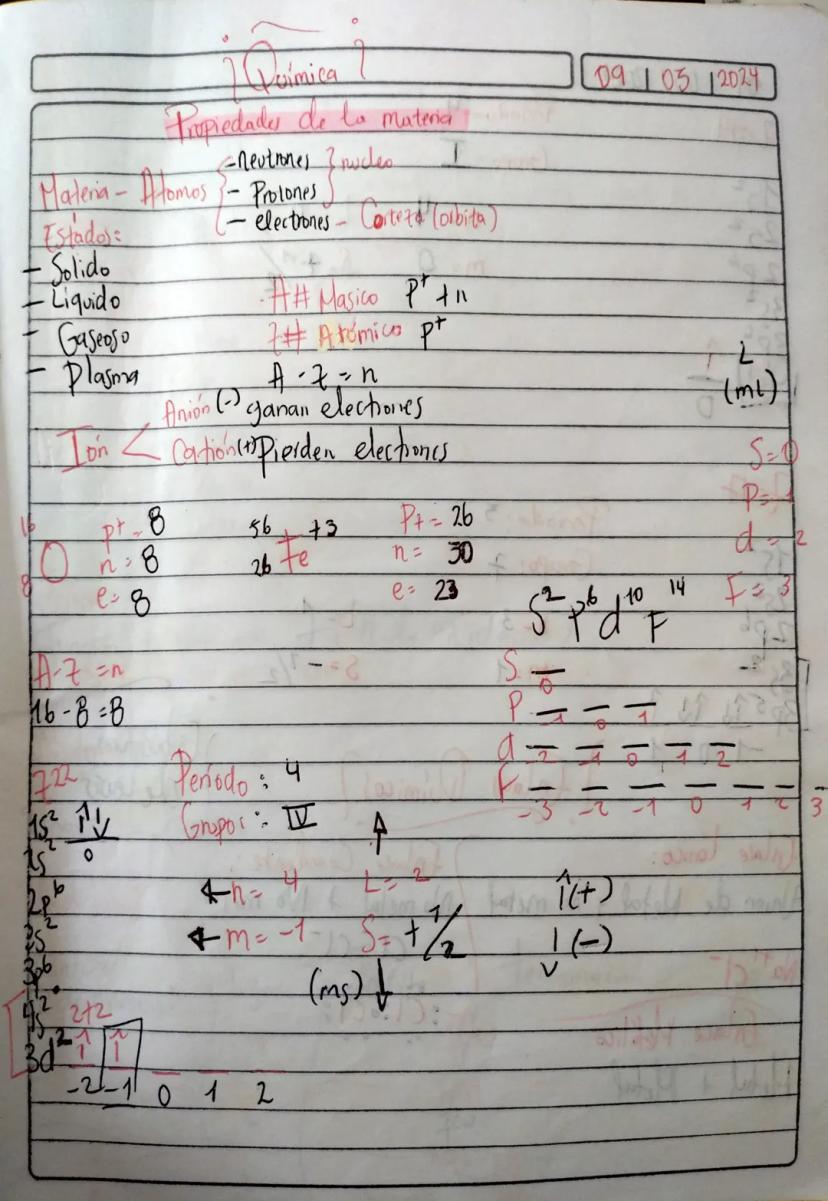 ¡Química!
09 | 05 | 2024
Propiedades de la materia
Materia - Atomos
- neutrones
- Protones
} nucleo
- electrones - Corteza (orbita)
Estados:
- Solido
- Liquido
- Gaseoso
- Plasma
A## Masico P⁺ + n
Z## Atómico P⁺
A - Z = n
L
(ml)
Ión < Anión (-) ganan electrones
Catión (+) Pierden electrones
S = 0
P = 1
d = 2
F = 3
16
8
O
P+ = 8
n = 8
e = 8
56
26
Fe
+3
P+ = 26
n = 30
e = 23
S² P⁶ d¹⁰ F¹⁴
A - Z = n
16 - 8 = 8
S _
0
P _ _ _
-1 0 1
d _ _ _ _ _
-2 -1 0 1 2
F _ _ _ _ _ _ _
-3 -2 -1 0 1 2 3
Z²²
Período: 4
Grupo: IV
1s² ↑↓
0
2p⁶
3p⁶
4s²
2+2
3d² ↑ ↑ _ _ _
-2 -1 0 1 2
↑
← n = 4 L = 2
← m = -1 S = +1/2
(ms) ↓
↑ (+)
↓ (-)